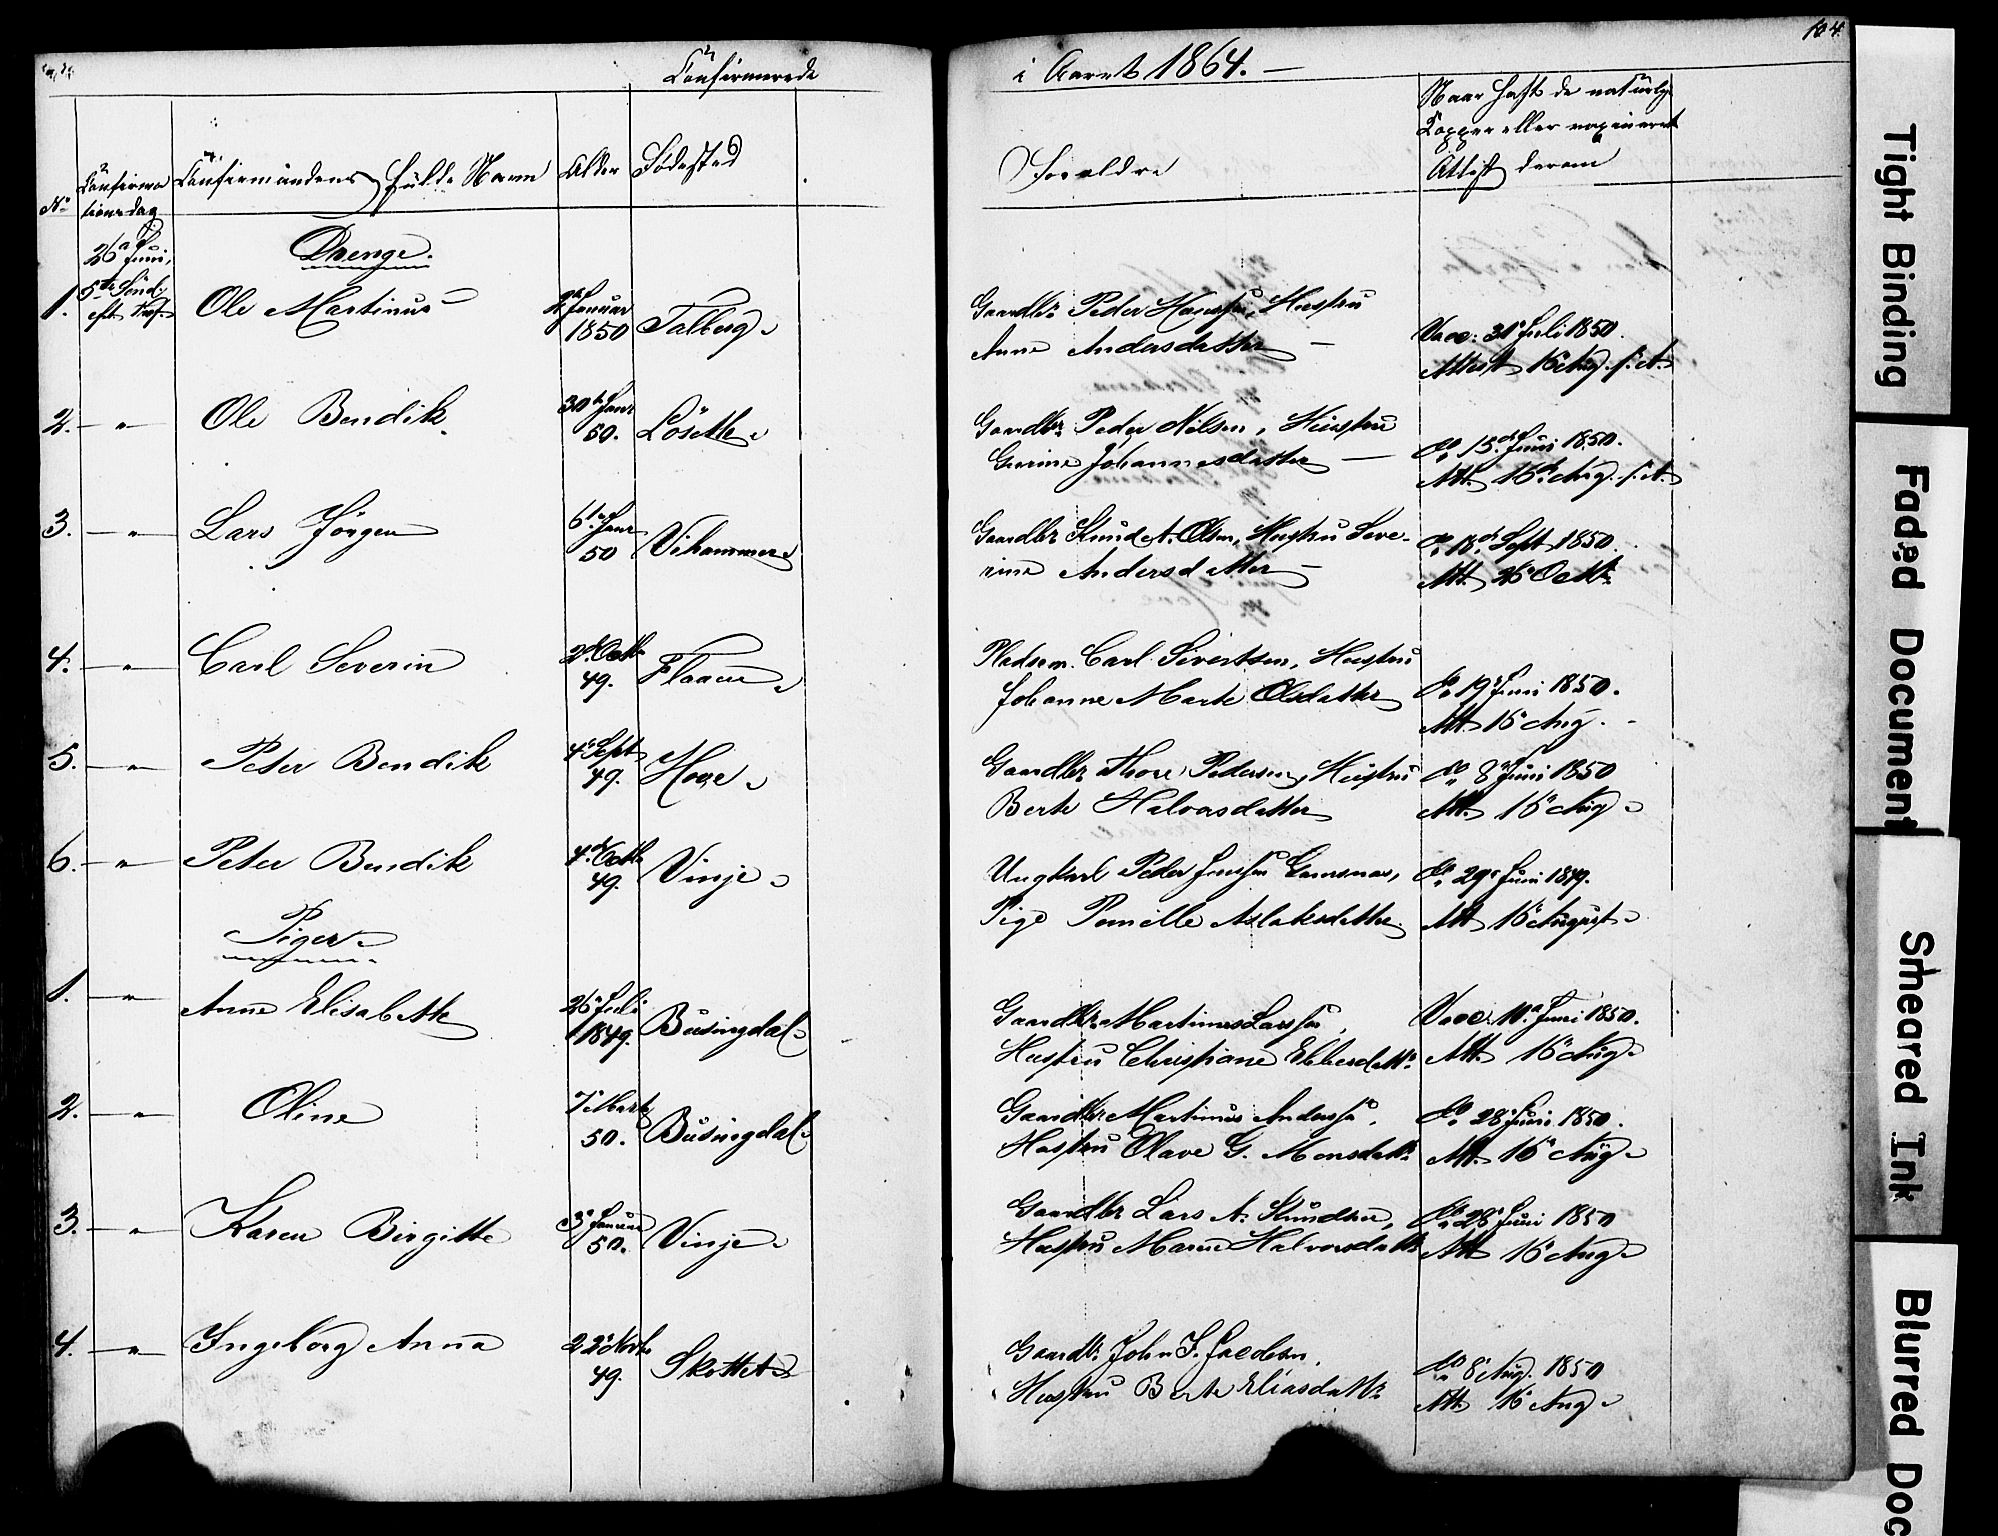 Confirmerede
i Aaret 1864.
104
No
Confirma
tionsdag
Confirmandens fulde Navn
Alder
Fødested
Forældre
Naar haft de naturlige
Kopper eller vaccineret
Attest derom
Drenge.
26de Juni,
5te Sönd.
eft. Tref.
1.
Ole Martinus
Januar
1850
Talberg
Gaardbr. Peder Hansen, Hustru
Anne Andersdatter
Vacc. 31 Juli 1850.
Attest 16 Aug. s. A.
2. — " —
Ole Bendik
30te Janr
50.
Lösette
Gaardbr. Peder Nilsen, Hustru
Gurine Johannesdatter
do 15de Juni 1850.
Att. 16de Aug. s. A.
3. — " —
Lars Jörgen
6te Janr
50
Vihammer
Gaardbr Knud A. Olsen, Hustru Seve-
rine Andersdatter
do 18de Sept 1850.
Att. 26 Octbr
4. — " —
Carl Severin
2de Octbr
49.
Flaaen
Pladsm. Carl Sivertsen, Hustru
Johanne Marte Olsdatter
do 19de Juni 1850.
Att. 16 Aug.
5. — " —
Peter Bendik
4de Sept
49.
Hove
Gaardbr Thore Pedersen, Hustru
Berte Halvorsdatter
do 8de Juni 1850
Att. 16 Aug
6. — " —
Peter Bendik
4de Octbr
49.
Vinje
Ungkarl Peder Jensen
Pige Pernille Aslaksdatter
do 29de Juni 1849.
Att 16 August
Piger
1. — " —
Anne Elisabeth
26 Juli
1849.
Busingdal
Gaardbr. Martinus Larssen,
Hustru Christiane Ebbesdattr
Vacc. 10de Juni 1850.
Att. 16 Aug
2. — " —
Oline
7 Marts
50.
Busingdal
Gaardbr. Martinus Anderssen,
Hustru Olave G. Monsdattr
do 28de Juni 1850.
Att. 16 Aug
3. — " —
Karen Birgitte
3de Januar
50.
Vinje
Gaardbr Lars A. Knudsen,
Hustru Maren Halvorsdattr
do 28de Juni 1850
Att 16 Aug
4. — " —
Ingeborg Anna
22de Novbr
49.
Skottet
Gaardbr. John I. Jacobsen,
Hustru Berte Eliasdattr
do 8de Aug. 1850
Att. 16 Aug
Tight Binding
Faded Document
Smeared Ink
Blurred Doc